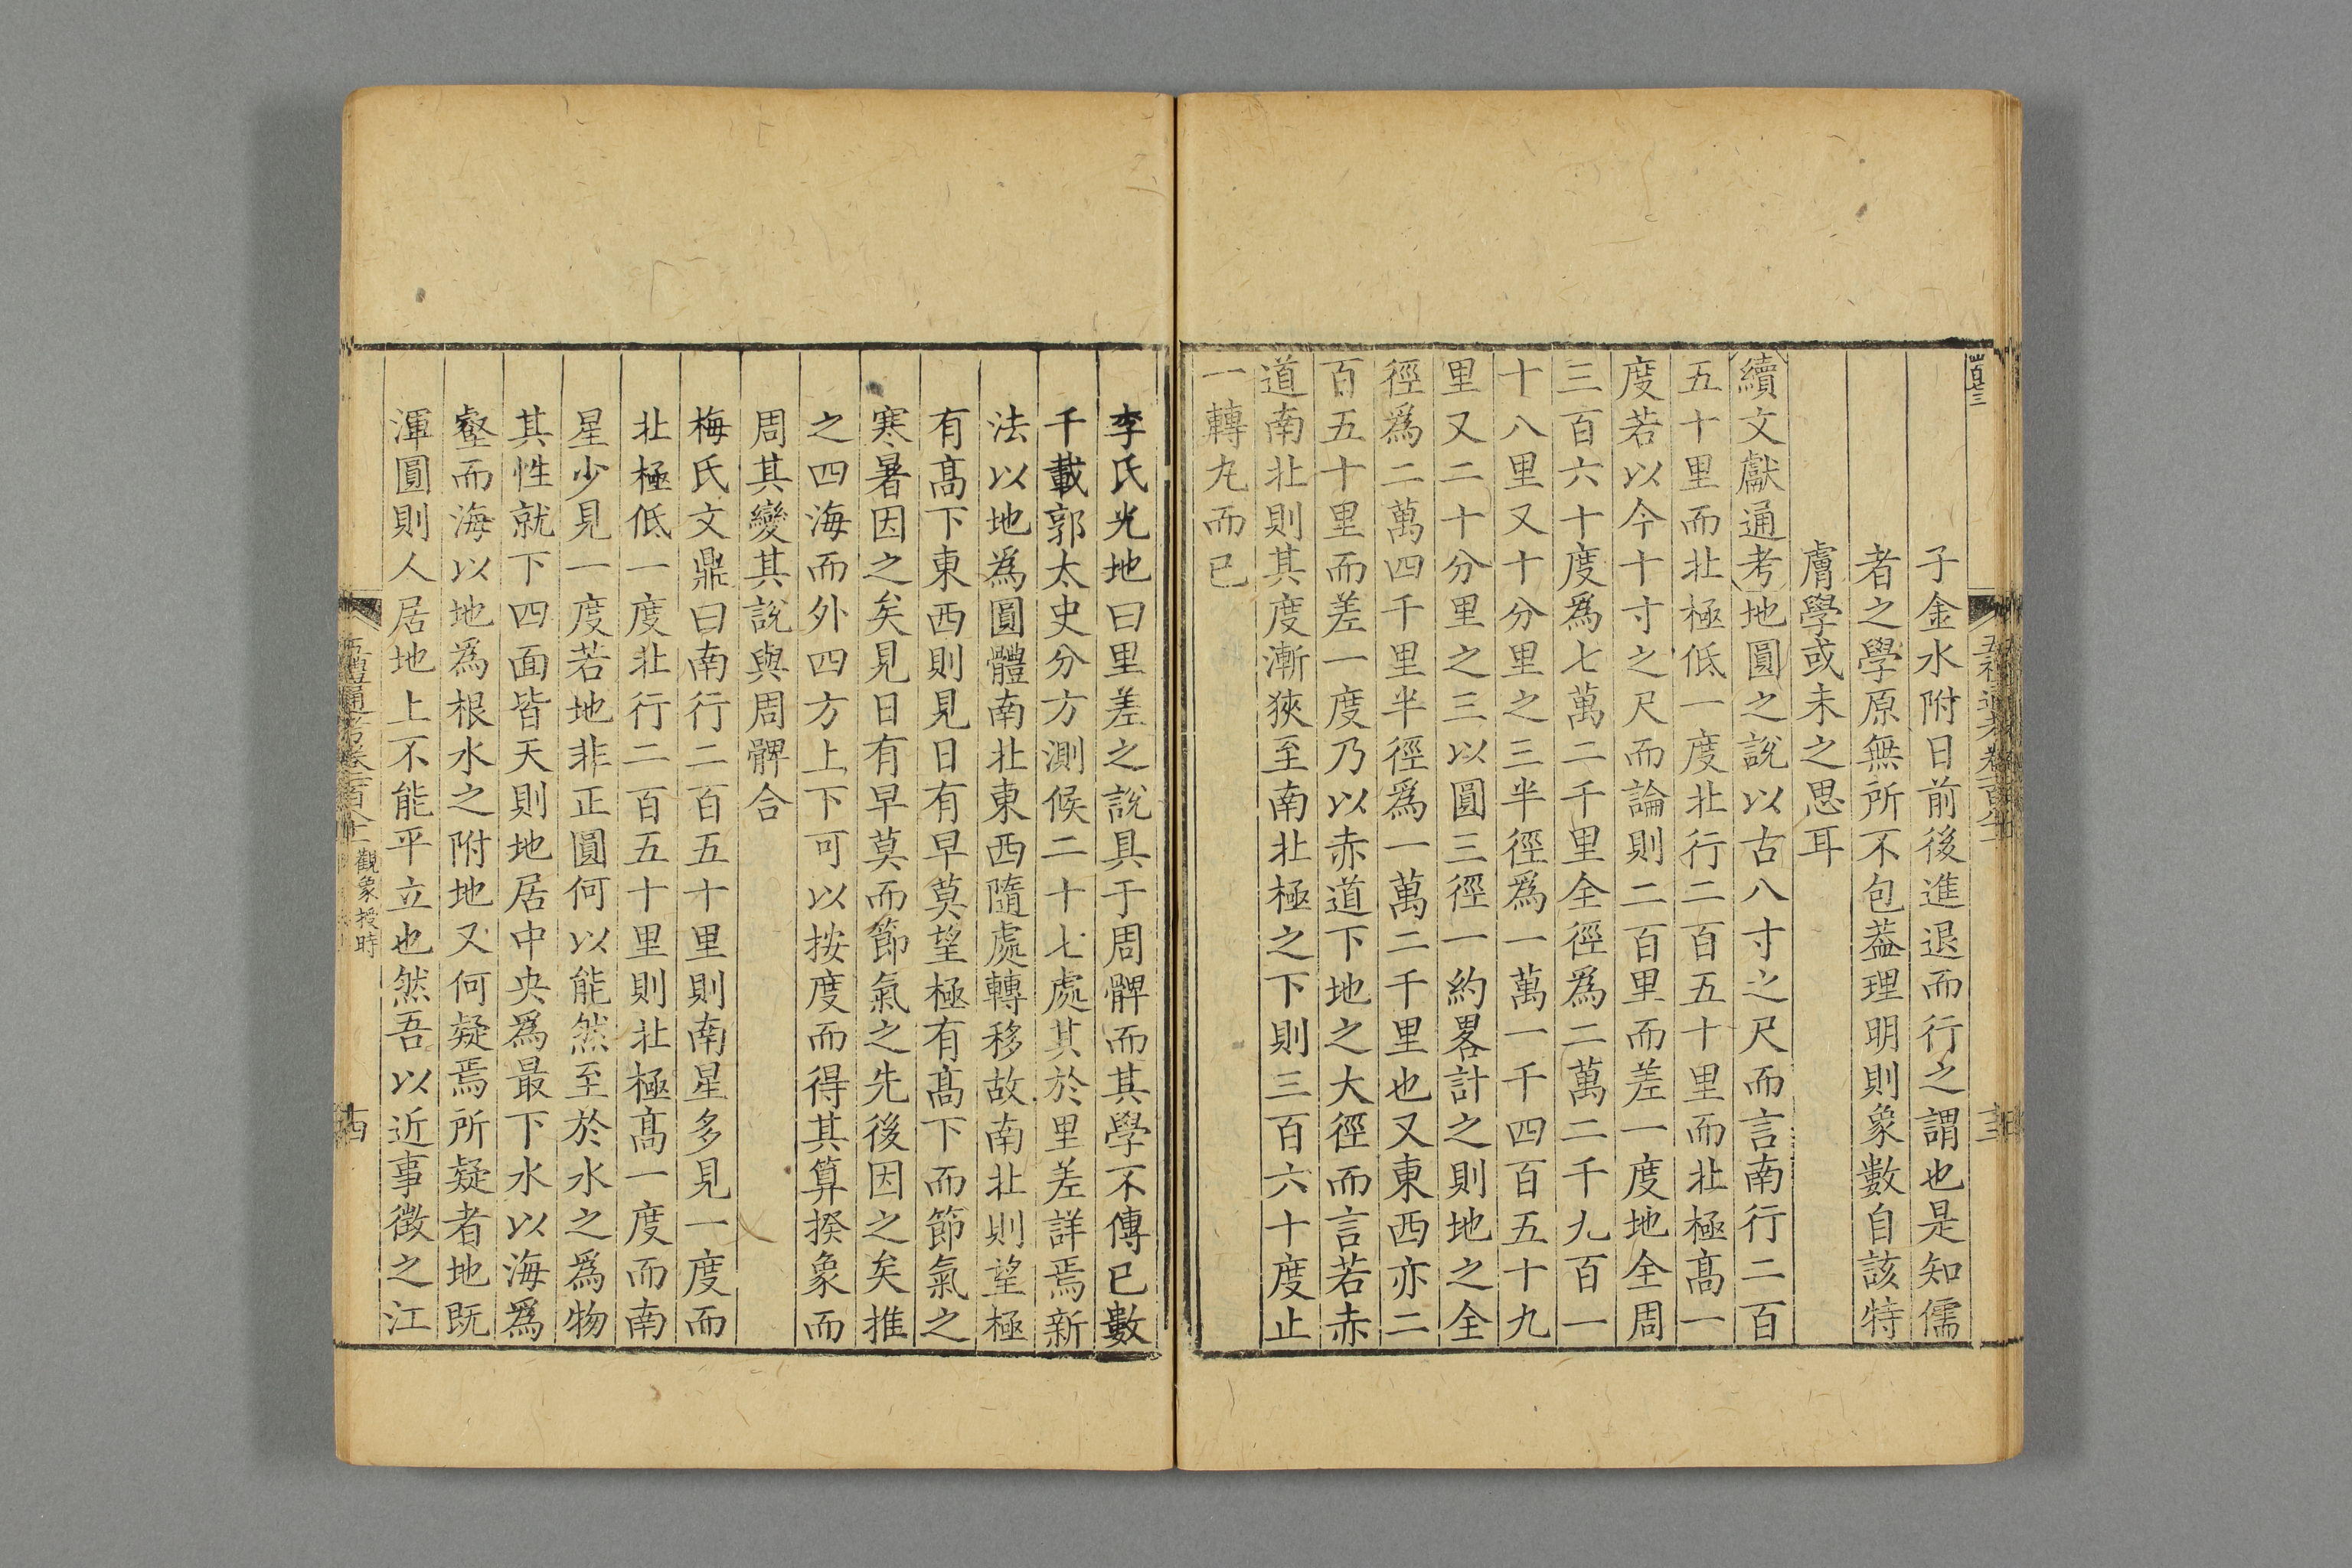 子金水附日前後進退而行之謂也是知儒
者之學原無所不包葢理明則象數自該特
膚學或未之思耳
續文獻通考地圓之說以古八寸之尺而言南行二百
五十里而北極低一度北行二百五十里而北極髙一
度若以今十寸之尺而論則二百里而差一度地全周
三百六十度爲七萬二千里全徑爲二萬二千九百一
十八里又十分里之三半徑爲一萬一千四百五十九
里又二十分里之三以圓三徑一約畧計之則地之全
徑爲二萬四千里半徑爲一萬二千里也又東西亦二
百五十里而差一度乃以赤道下地之大徑而言若赤
道南北則其度漸狹至南北極之下則三百六十度止
一轉丸而已
李氏光地曰里差之說具于周髀而其學不傳已數
千載郭太史分方測候二十七處其於里差詳焉新
法以地爲圓體南北東西隨處轉移故南北則望極
有髙下東西則見日有早莫望極有髙下而節氣之
寒暑因之矣見日有早莫而節氣之先後因之矣推
之四海而外四方上下可以按度而得其算揆象而
周其變其說與周髀合
梅氏文鼎曰南行二百五十里則南星多見一度而
北極低一度北行二百五十里則北極髙一度而南
星少見一度若地非正圓何以能然至於水之爲物
其性就下四面皆天則地居中央爲最下水以海爲
壑而海以地爲根水之附地又何疑焉所疑者地既
渾圓則人居地上不能平立也然吾以近事徵之江
五禮通考卷一百八十二
觀象授時
十四